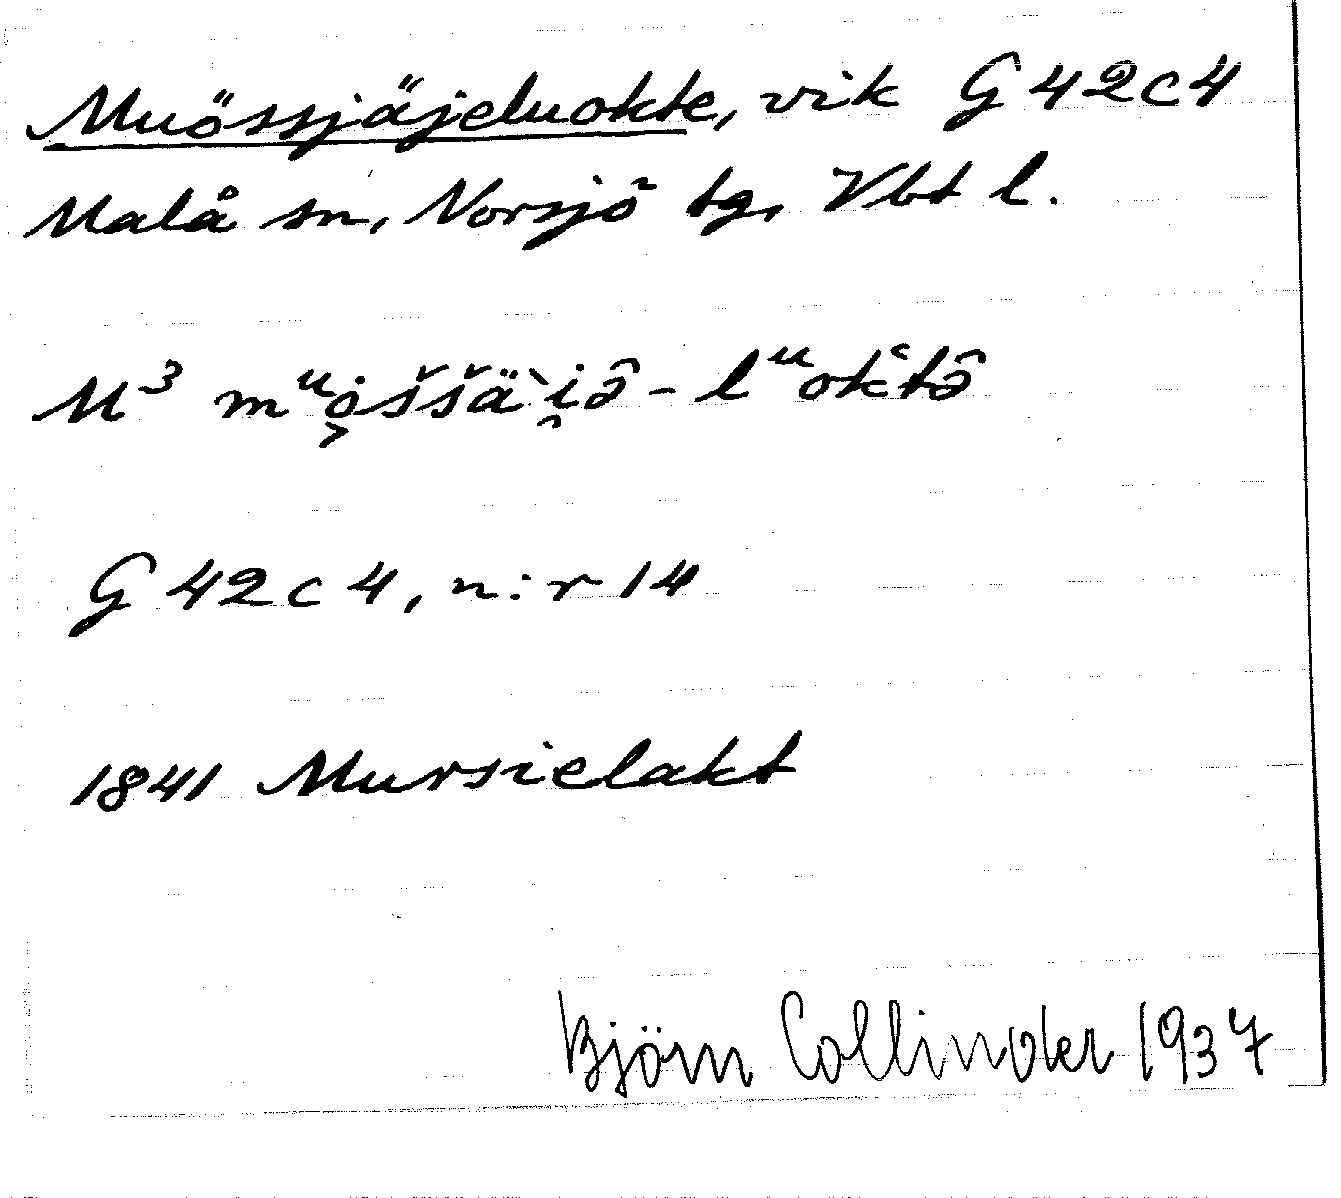 Muössjäjeluokte, vik G 42 c 4
Malå sn, Norsjö tg, Vbt l.
M³ mᵘo̭ššä`i̯ə̑ - lᵘok‘tə̑
G 42 c 4, n:r 14
1841 Mursielakt
Björn Collinder 1937